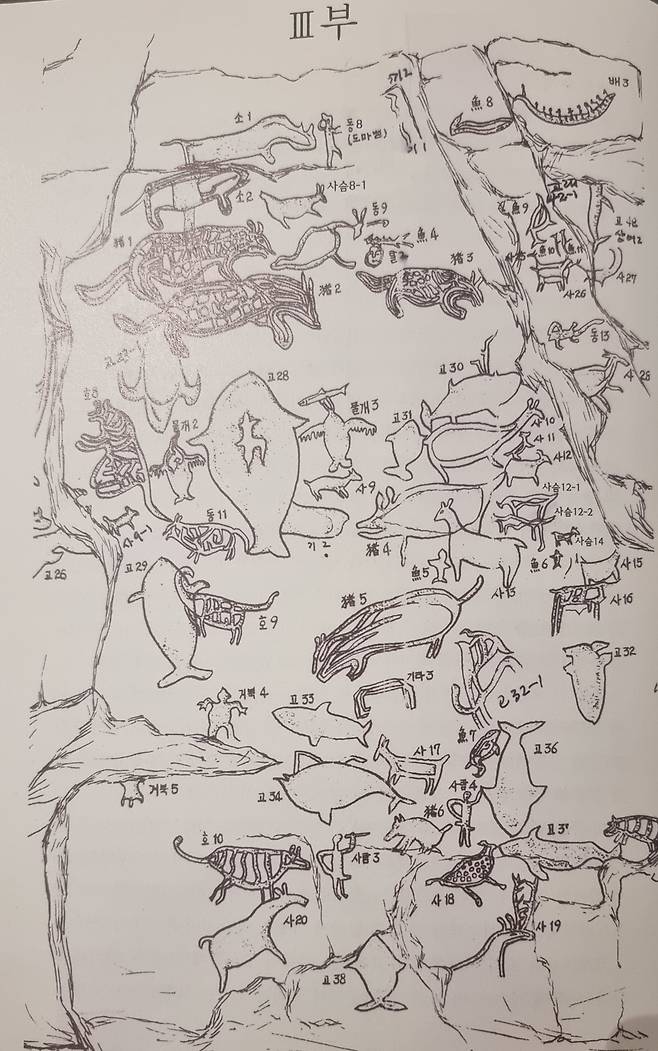 Ⅲ부
배 3
기2
魚 8
소 1
동 8
(도마뱀)
사슴8-1
소2
동9
魚 4
魚9
猪 1
猪 3
사26
사27
猪 2
동13
고28
고30
호8
물개 2
물개 3
고31
사10
사11
사12
사9
사슴12-1
사슴12-2
사9-1
동11
猪 4
사슴14
고26
고29
魚5
사13
魚 6
사15
호9
猪 5
사16
기타 3
고32
고32-1
거북 4
고33
魚7
고36
사17
거북 5
고34
사람4
猪6
호 10
사람 3
사18
사20
사19
고38